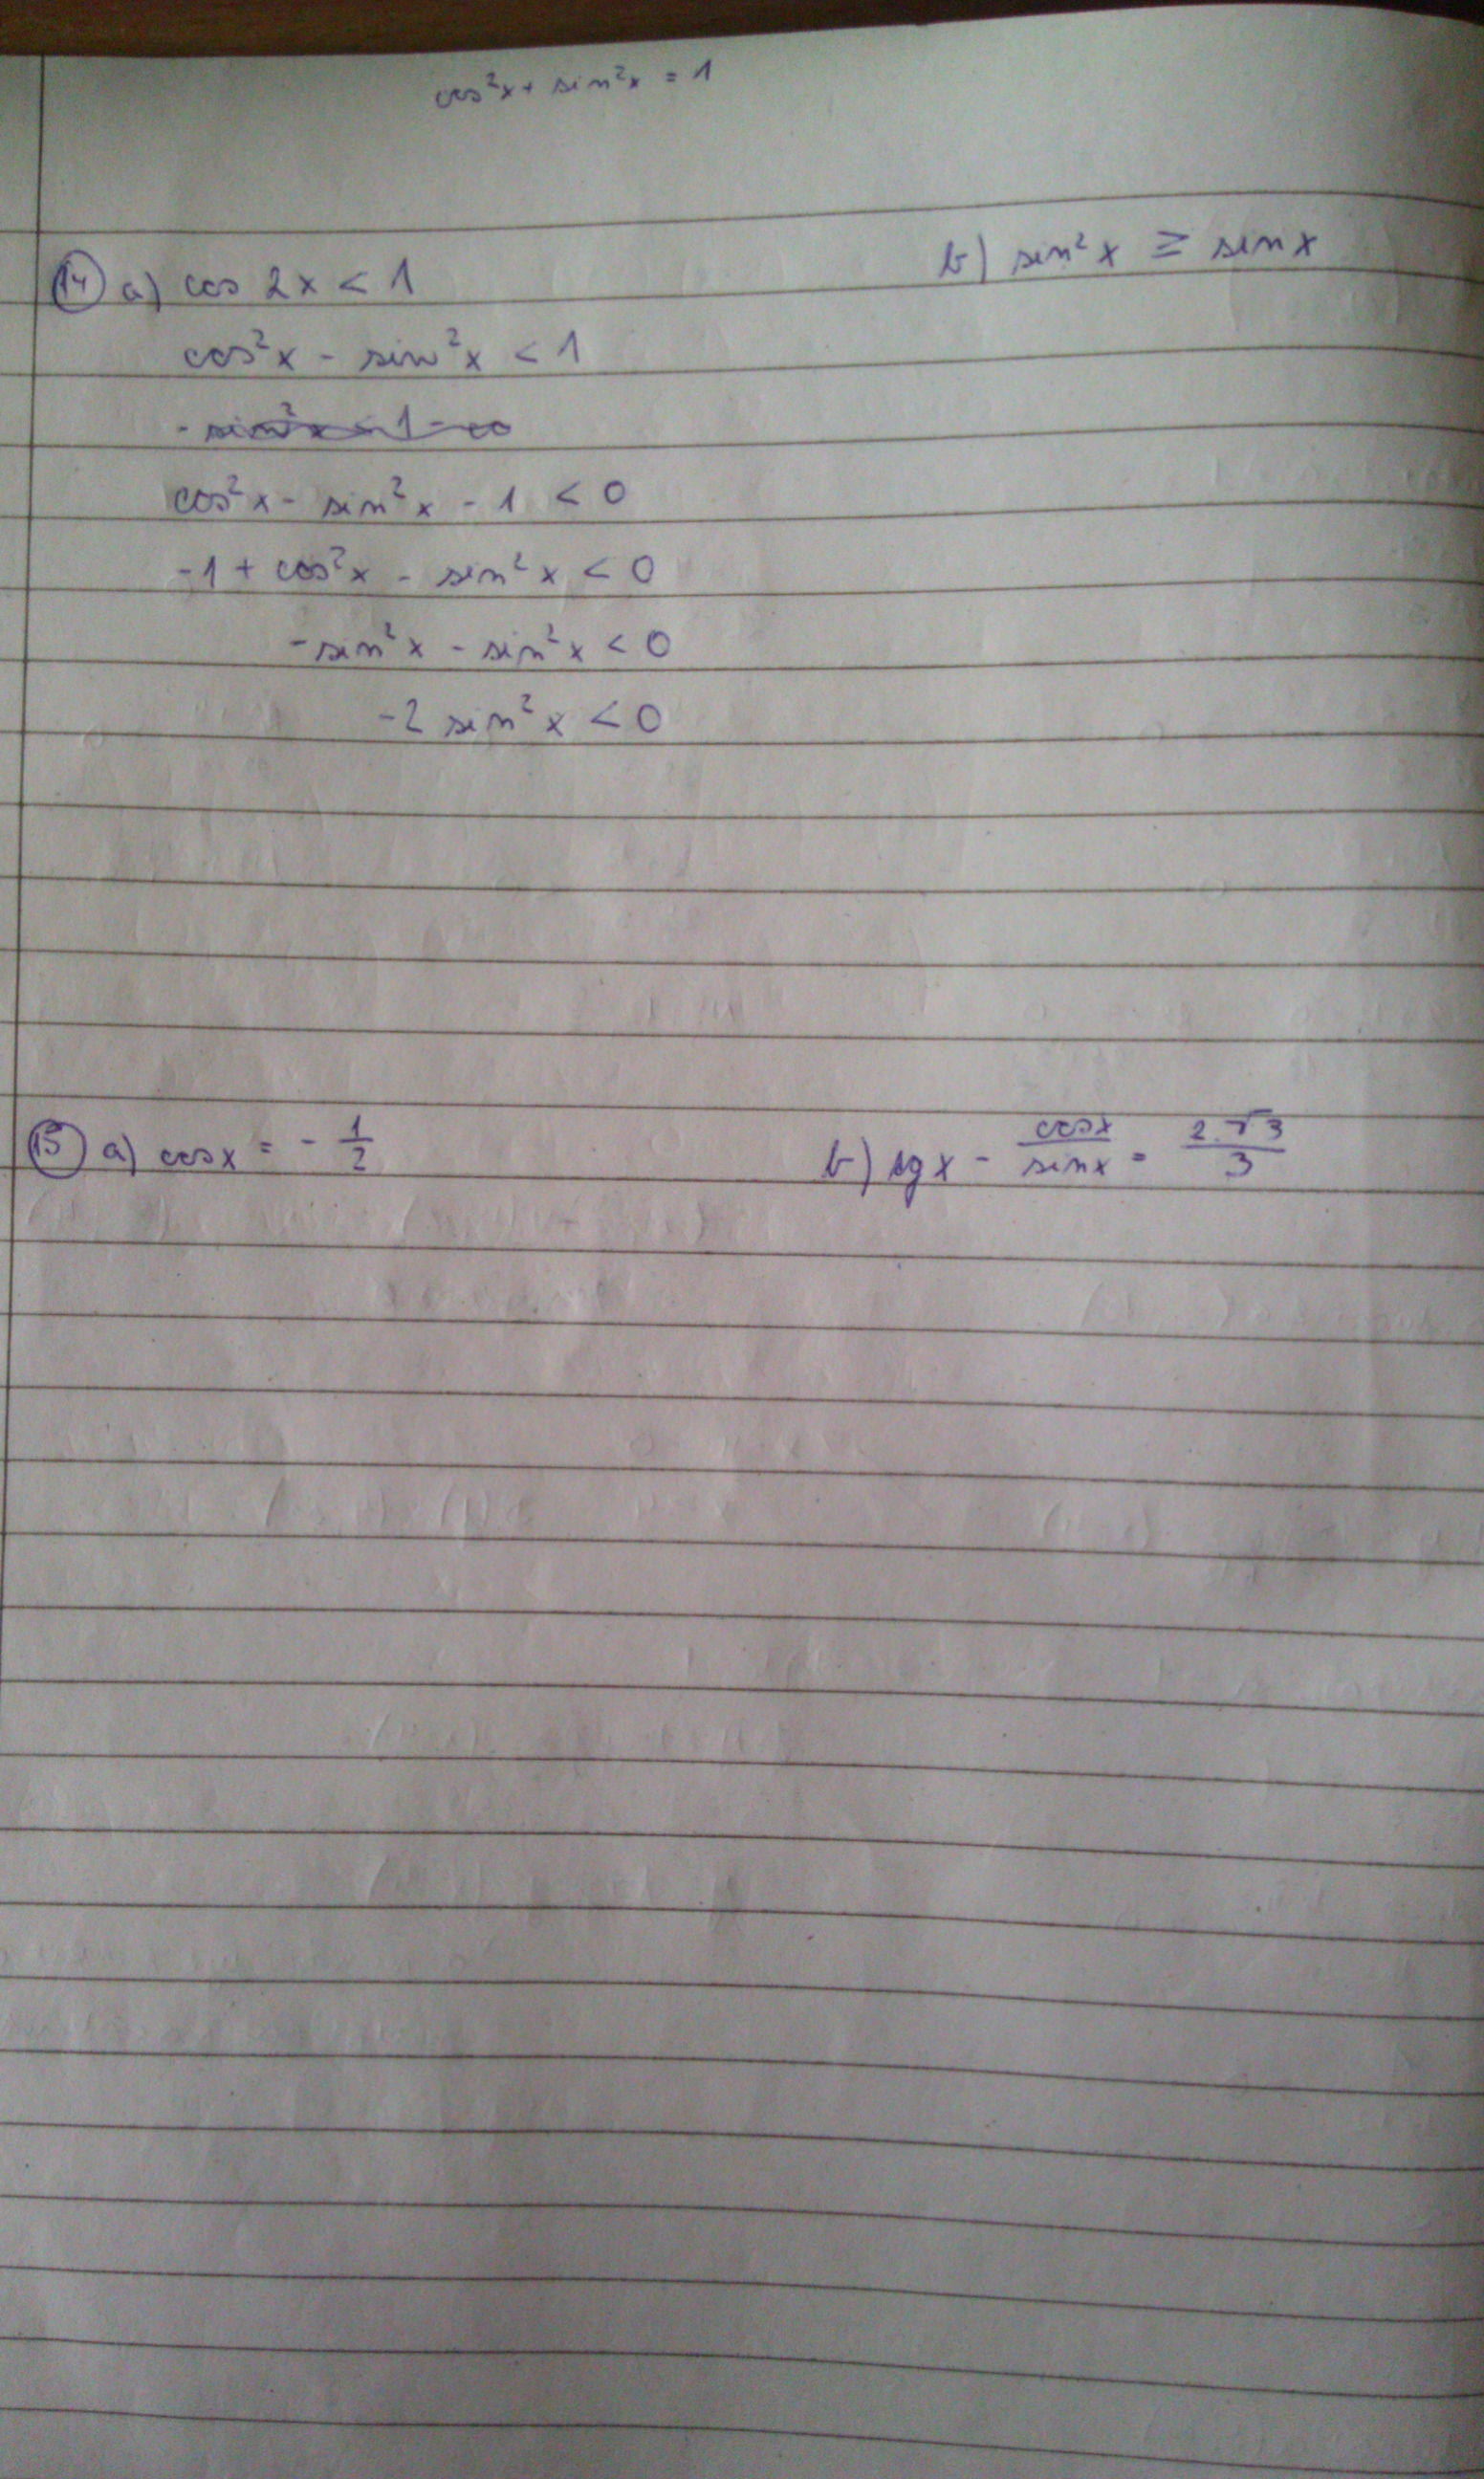 cos²x + sin²x = 1
14 a) cos 2x < 1
b) sin²x ≥ sinx
cos²x - sin²x < 1
cos²x - sin²x - 1 < 0
-1 + cos²x - sin²x < 0
-sin²x - sin²x < 0
-2 sin²x < 0
15 a) cosx = - 1/2
b) tgx - cosx/sinx = 2√3/3